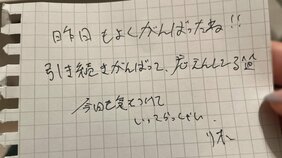 昨日もよくがんばったね!!
引き続きがんばって、応えんしてる
今日も気をつけて
いってらっしゃい